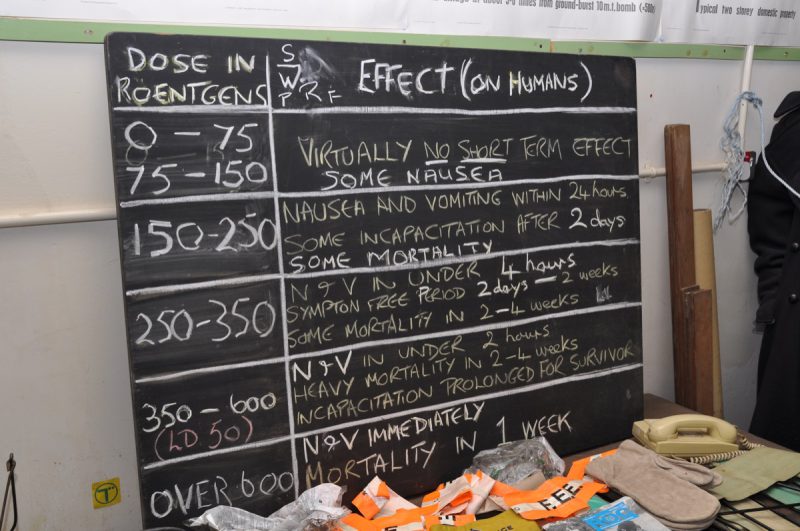 Typical two storey domestic property
miles from ground-burst 10m.t.bomb
DOSE IN
ROENTGENS
S
W
P R F
EFFECT (ON HUMANS)
0 – 75
75 – 150
VIRTUALLY NO SHORT TERM EFFECT
SOME NAUSEA
150-250
NAUSEA AND VOMITING WITHIN 24 hours
SOME INCAPACITATION AFTER 2 days
SOME MORTALITY
250-350
N & V IN UNDER 4 hours
SYMPTON FREE PERIOD 2 days – 2 weeks
SOME MORTALITY IN 2-4 weeks
350 – 600
(LD 50)
N & V IN UNDER 2 hours
HEAVY MORTALITY IN 2-4 weeks
INCAPACITATION PROLONGED FOR SURVIVOR
OVER 600
N & V IMMEDIATELY
MORTALITY IN 1 WEEK
T